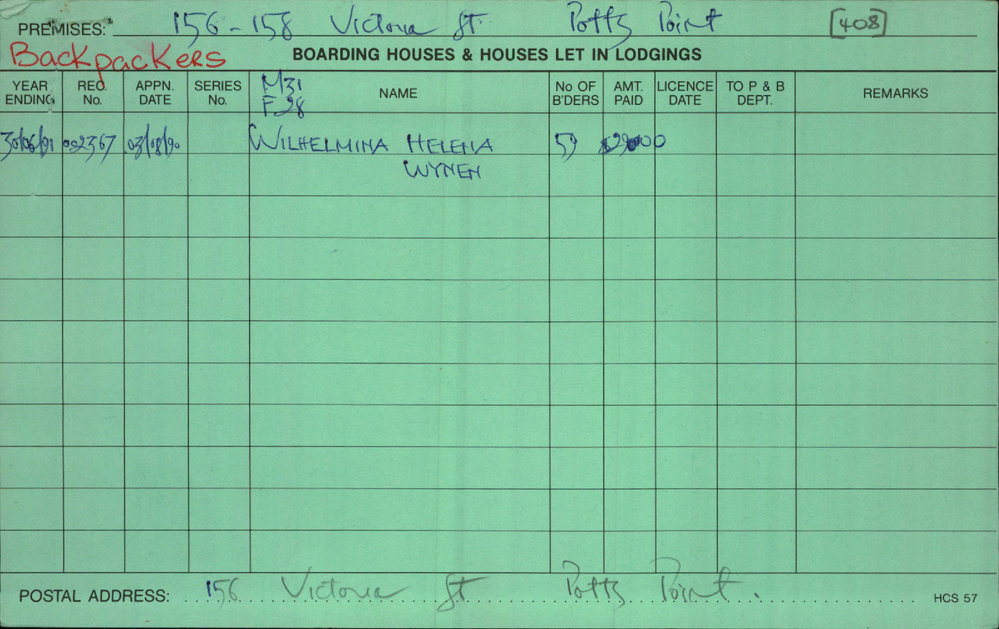 PREMISES: 156-158 Victoria St Potts Point [408]
Backpackers BOARDING HOUSES & HOUSES LET IN LODGINGS
YEAR ENDING REC. No. APPN. DATE SERIES No. M31 F28 NAME No OF B'DERS AMT. PAID LICENCE DATE TO P & B DEPT. REMARKS
30/06/91 002367 03/08/90 WILHELMINA HELENA 59
WYNEN
POSTAL ADDRESS: 156 Victoria St Potts Point. HCS 57